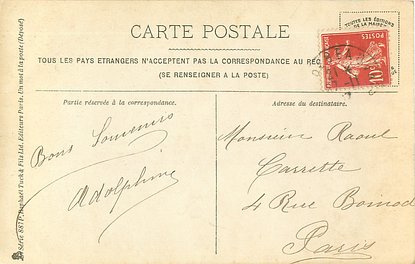 CARTE POSTALE
TOUS LES PAYS ETRANGERS N'ACCEPTENT PAS LA CORRESPONDANCE AU REC
(SE RENSEIGNER A LA POSTE)
TOUTES LES ÉDITIONS
DE LA MAISON
POSTES
10
Partie réservée à la correspondance.
Adresse du destinataire.
Bons Souvenirs
Adolphine
Monsieur Raoul
Carrette
4 Rue
Paris
Série 887 P. Raphael Tuck & Fils Ltd. Editeurs Paris. Un mot à la poste (Déposé)